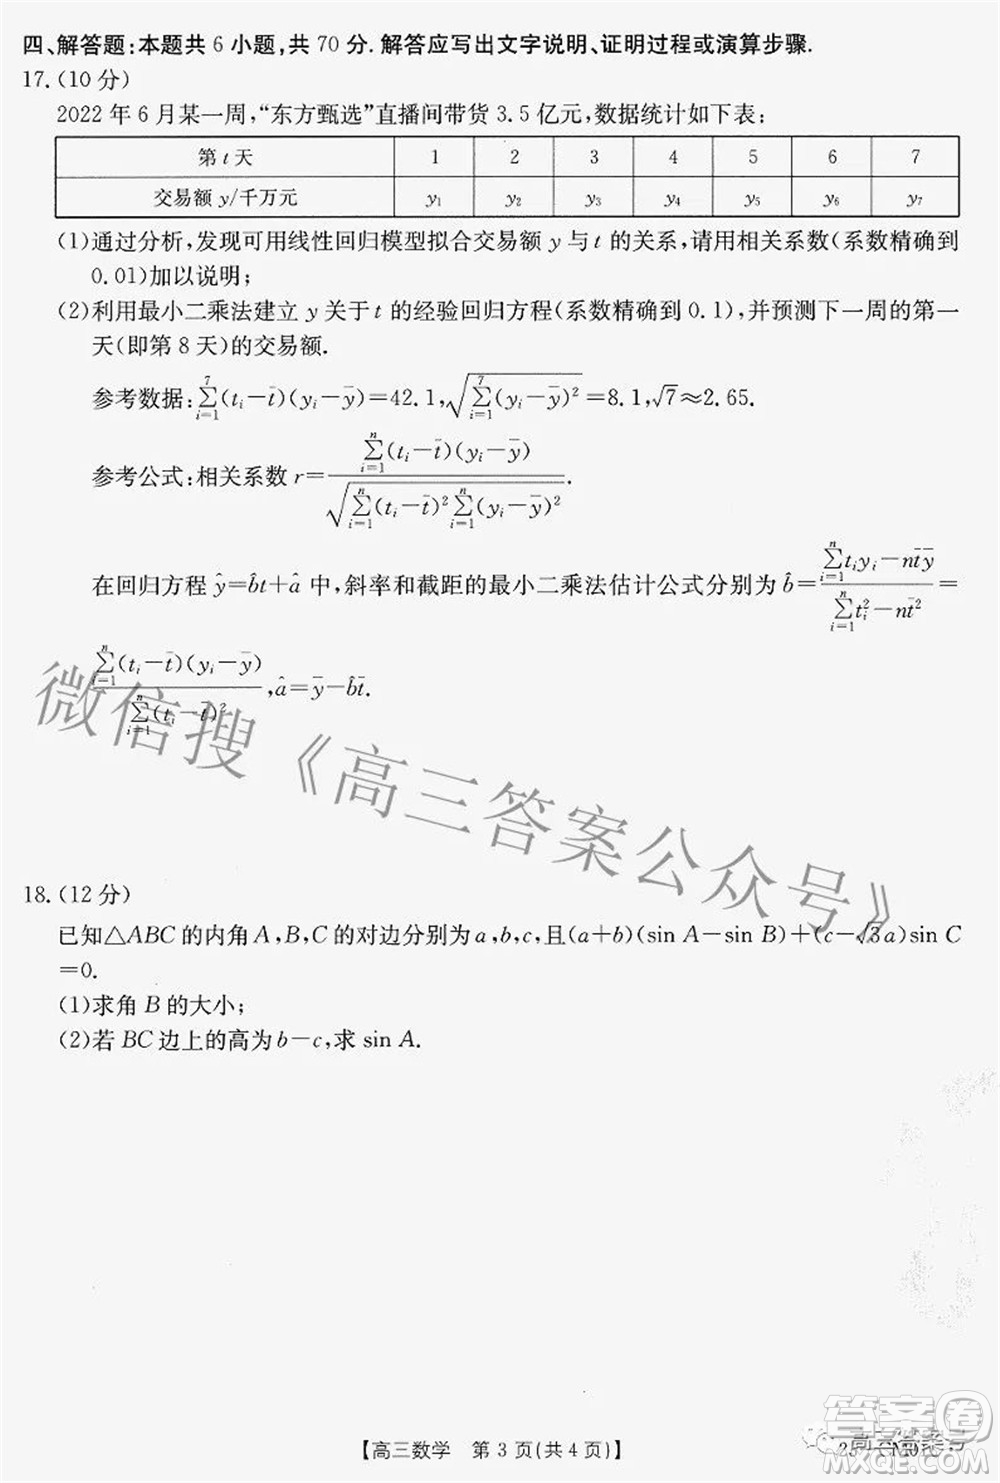 四、解答题:本题共 6 小题,共 70 分. 解答应写出文字说明、证明过程或演算步骤.
17.(10 分)
2022 年 6 月某一周,“东方甄选”直播间带货 3.5 亿元,数据统计如下表:
第 t 天 1 2 3 4 5 6 7
交易额 y/千万元 y₁ y₂ y₃ y₄ y₅ y₆ y₇
(1)通过分析,发现可用线性回归模型拟合交易额 y 与 t 的关系,请用相关系数(系数精确到
0.01)加以说明;
(2)利用最小二乘法建立 y 关于 t 的经验回归方程(系数精确到 0.1),并预测下一周的第一
天(即第 8 天)的交易额.
参考数据:∑_{i=1}^{7}(tᵢ-t̄)(yᵢ-ȳ)=42.1,√(∑_{i=1}^{7}(yᵢ-ȳ)²)=8.1,√7≈2.65.
参考公式:相关系数 r=∑_{i=1}^{n}(tᵢ-t̄)(yᵢ-ȳ)/√(∑_{i=1}^{n}(tᵢ-t̄)²∑_{i=1}^{n}(yᵢ-ȳ)²).
在回归方程 ŷ=b̂t+â 中,斜率和截距的最小二乘法估计公式分别为 b̂=(∑_{i=1}^{n}tᵢyᵢ-nt̄ȳ)/(∑_{i=1}^{n}tᵢ²-nt̄²)=
∑_{i=1}^{n}(tᵢ-t̄)(yᵢ-ȳ)/∑_{i=1}^{n}(tᵢ-t̄)²,â=ȳ-b̂t̄.
微信搜《高三答案公众号》
18.(12 分)
已知△ABC 的内角 A,B,C 的对边分别为 a,b,c,且(a+b)(sin A-sin B)+(c-√3a)sin C
=0.
(1)求角 B 的大小;
(2)若 BC 边上的高为 b-c,求 sin A.
【高三数学 第 3 页(共 4 页)】
答案圈